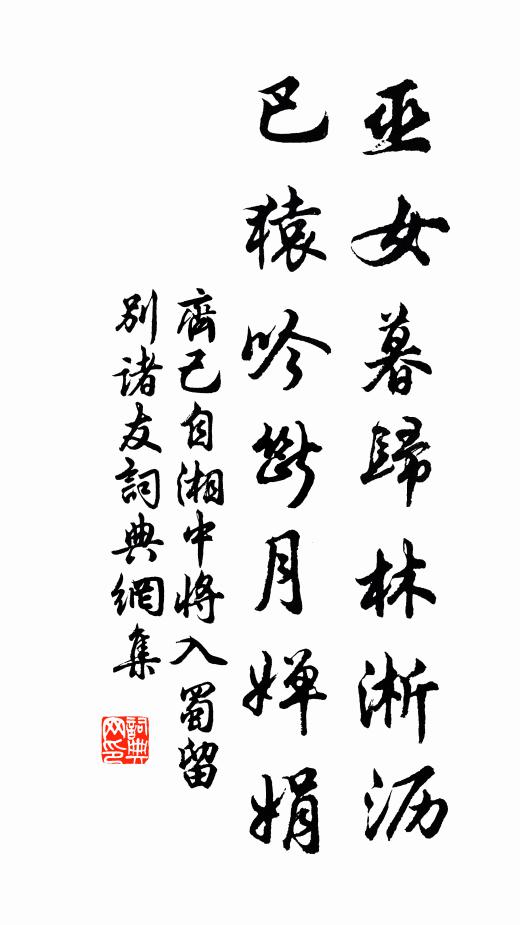 巫女暮歸林淅沥
巴猿吟斷月嬋娟
齊己自湘中將入蜀留
別诸友詞典網集
詞典
网印